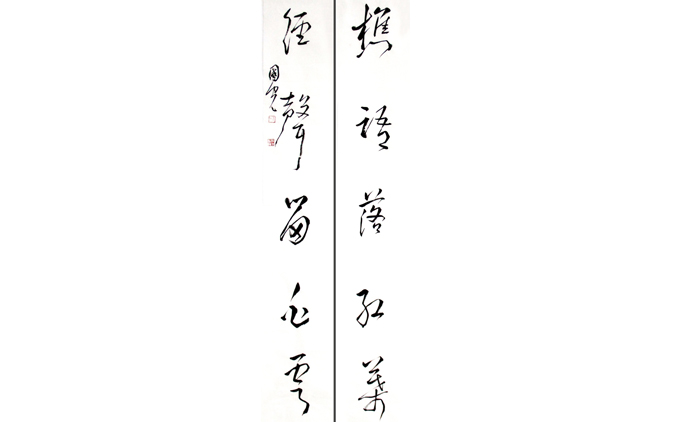 樵語落紅葉
經聲留白雲